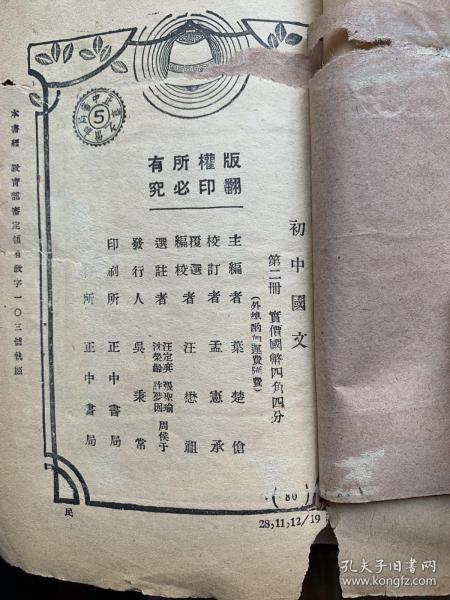 初中國文
第二冊 實價國幣四角四分
(外埠酌加運費匯費)
版權所有
翻印必究
主編者 葉楚傖
校訂者 孟憲承
覆選者
編校者 汪懋祖
選註者 汪定奕 張聖瑜 周侯于
沈榮齡 許夢因
發行人 吳秉常
印刷所 正中書局
所 正中書局
本書經 教育部審定領有教字一〇三號執照
5
(80)
28,11,12/19
民
孔夫子旧书网
www.kongfz.com